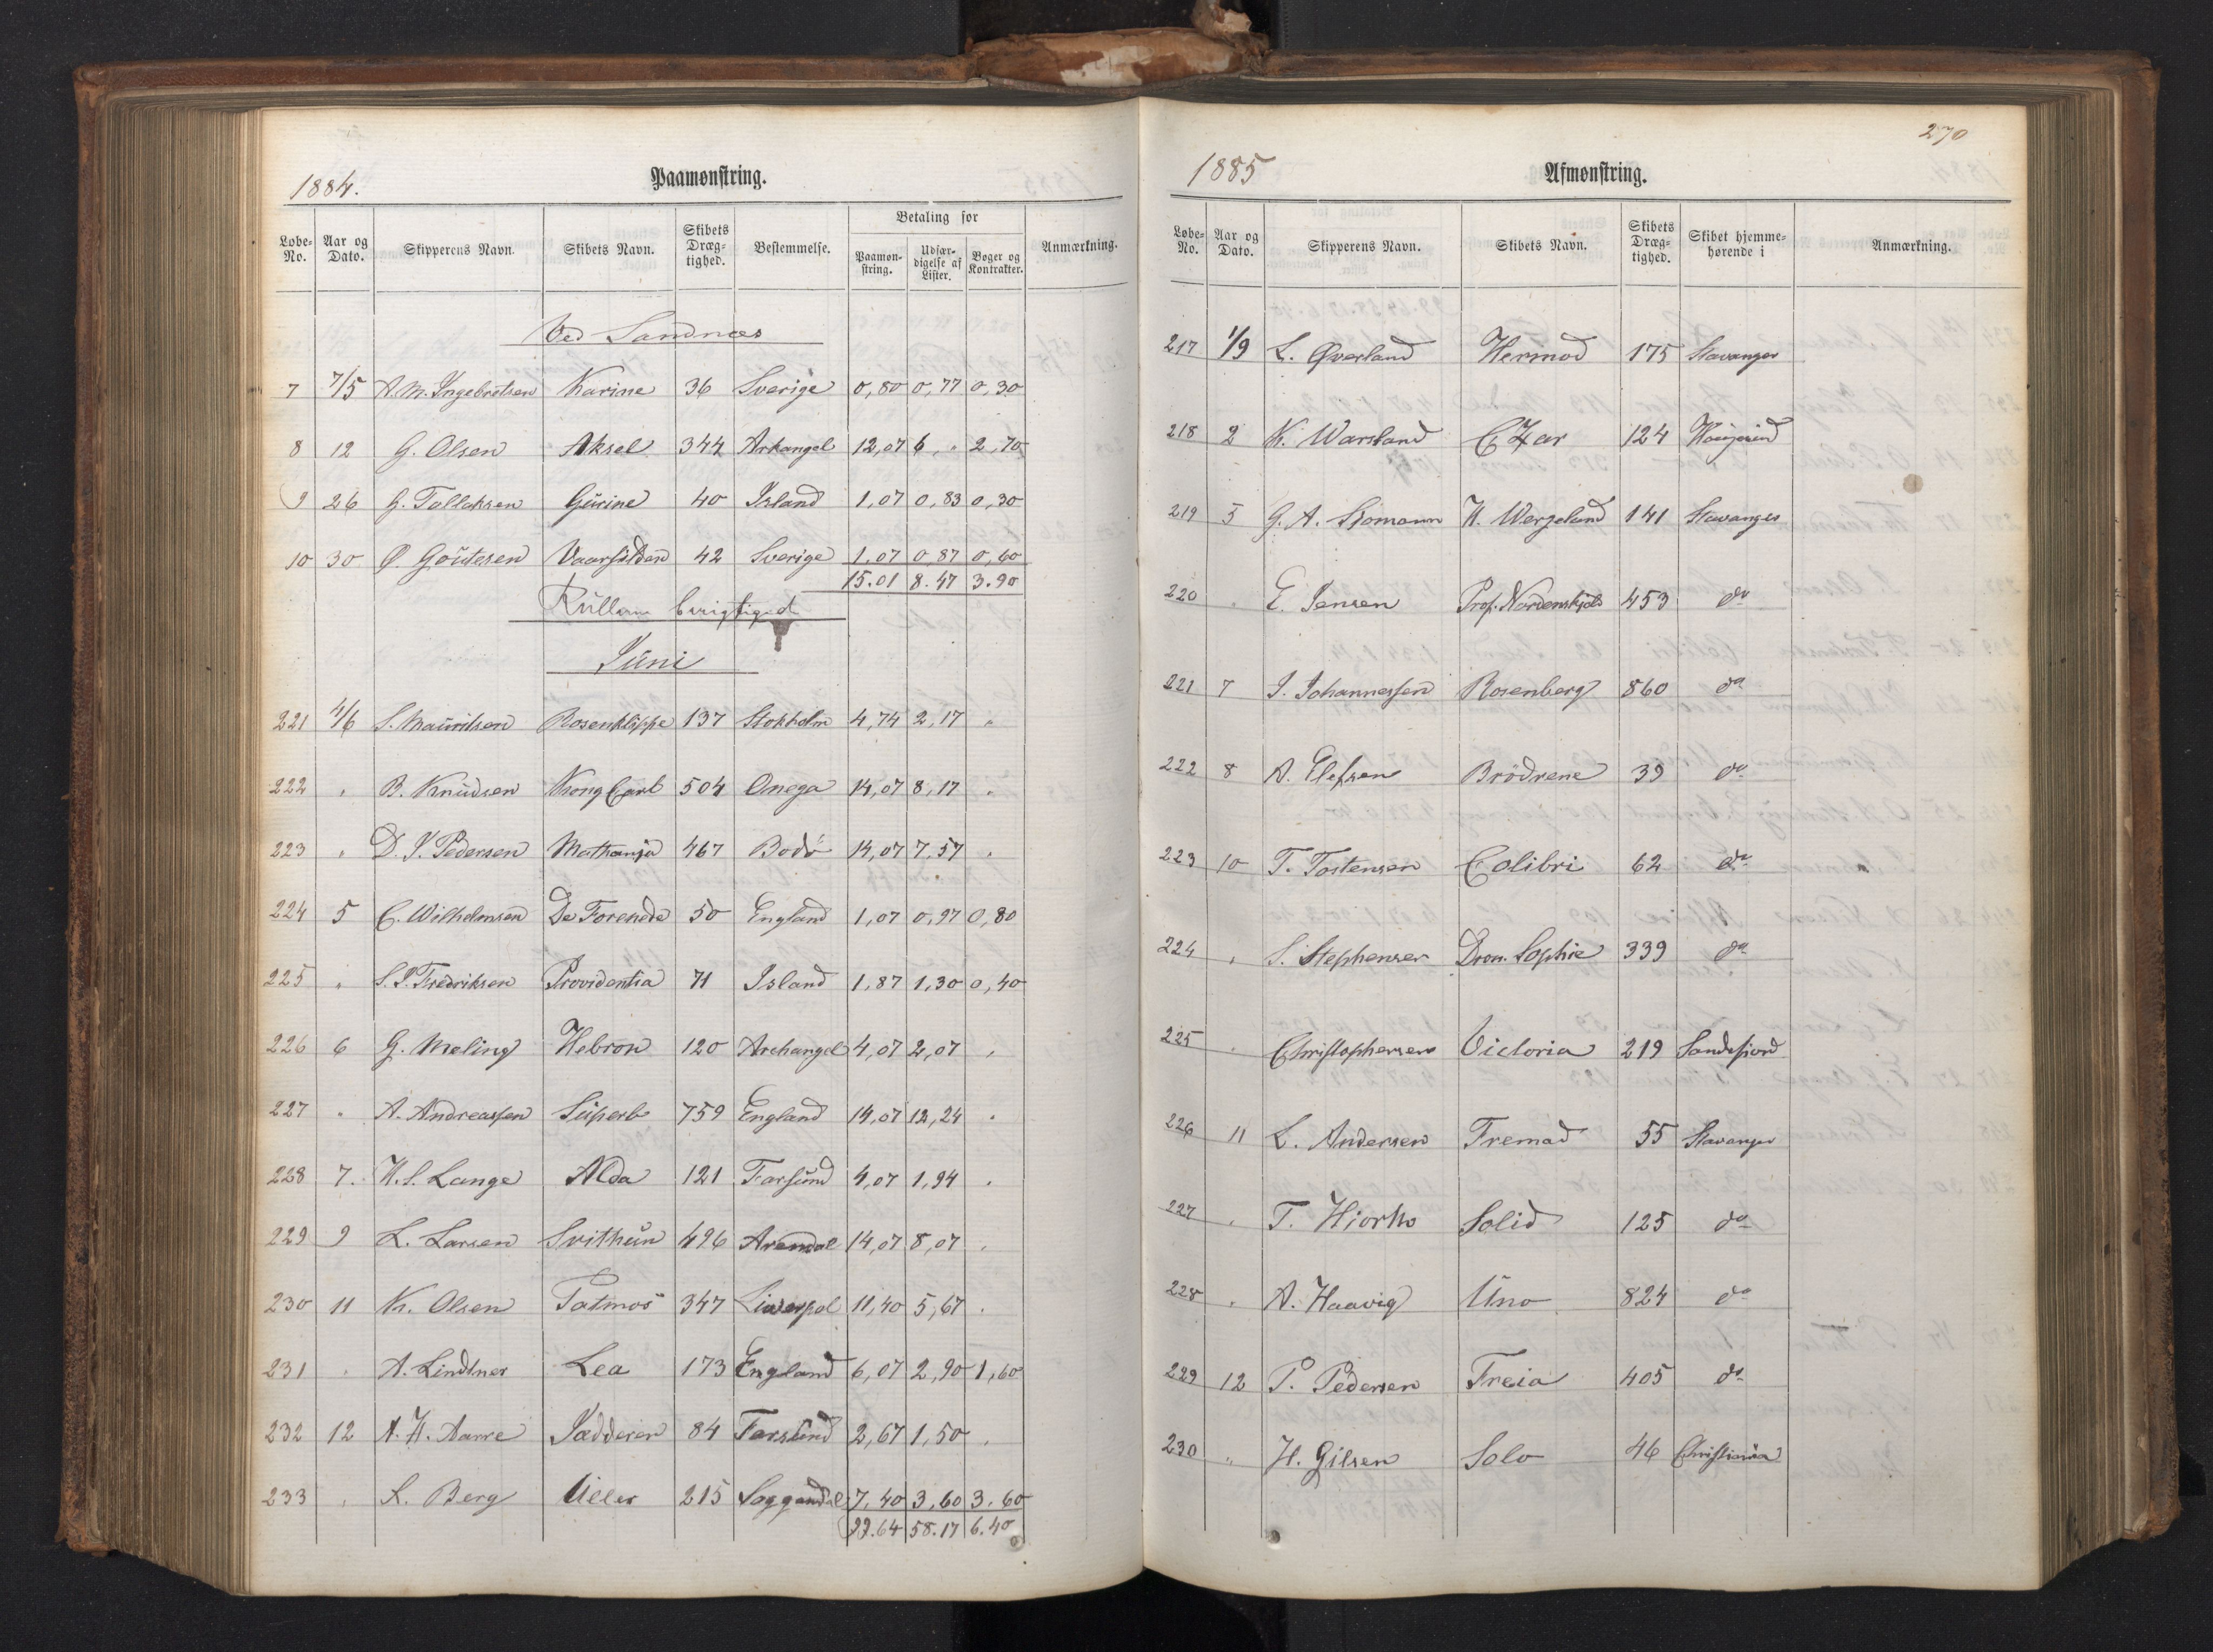 1884.
Paamønstring.
Løbe-No. Aar og Dato. Skipperens Navn. Skibets Navn. Skibets Dræg-tighed. Bestemmelse. Betaling for Paamøn-string. Udfær-digelse af Lister. Bøger og Kontrakter. Anmærkning.
Ved Sandnæs
7 7/5 A. M. Ingebretsen Karine 36 Sverige 0,80 0,77 0,30
8 12 G. Olsen Aksel 344 Arkangel 12,07 6, " 2,70
9 26 G. Tallaksen Gurine 40 Island 1,07 0,83 0,30
10 30 Ø. Goutesen Vaarsilden 42 Sverige 1,07 0,87 0,60
15.01 8.47 3.90
Rullerne berigtiged
Juni
221 4/6 S. Mauritsen Rosenklippe 137 Stokholm 4,74 2,17 "
222 " B. Knudsen Kong Carl 504 Onega 14,07 8,17 "
223 " D. J. Pedersen Mathanja 467 Bodø 14,07 7,57 "
224 5 C. Wilhelmsen De Forenede 50 England 1,07 0,97 0,80
225 " S. P. Fredriksen Providentia 71 Island 1,87 1,30 0,40
226 6 G. Meling Hebron 120 Archangel 4,07 2,07 "
227 " A. Andreassen Superb 759 England 14,07 12,24 "
228 7. H. S. Lange Alda 121 Farsund 4,07 1,94 "
229 9 L. Larsen Svithun 496 Arendal 14,07 8,07 "
230 11 Kr. Olsen Patmos 347 Liverpol 11,40 5,67 "
231 " A. Lindtner Lea 173 England 6,07 2,90 1,60
232 12 A. H. Aarre Jædderen 84 Farsund 2,67 1,50 "
233 " L. Berg Uller 215 Soggendal 7,40 3,60 3.60
99.64 58.17 6.40
270
1885
Afmønstring.
Løbe-No. Aar og Dato. Skipperens Navn. Skibets Navn. Skibets Dræg-tighed. Skibet hjemme-hørende i Anmærkning.
217 1/9 L. Øverland Hermod 175 Stavanger
218 2 K. Warsland CZar 124
219 5 G. A. Sømann H. Wergeland 141 Stavanger
220 " E. Jensen Prof. Nordenskjold 453 do
221 7 J. Johannessen Rosenberg 860 do
222 8 A. Elefsen Brödrene 39 do
223 10 T. Tostensen Colibri 62 do
224 " S. Stephensen Dron. Sophie 339 do
225 " Christophersen Victoria 219 Sandefiord
226 11 L. Andersen Fremad 55 Stavanger
227 " T. Hiorth Solid 125 do
228 " A. Haavig Uno 824 do
229 12 P. Pedersen Freia 405 do
230 " H. Gilsen Solo 46 Christiania